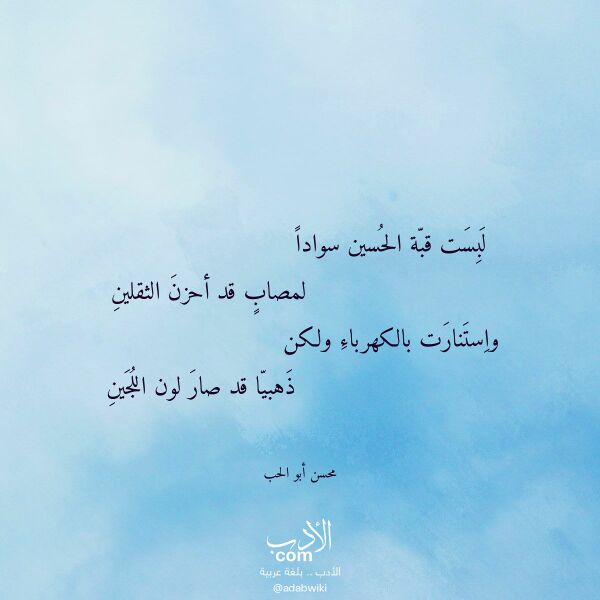 لَبِسَت قبّة الحُسين سواداً
لمصابٍ قد أحزنَ الثقلينِ
واِستَنارَت بالكهرباءِ ولكن
ذَهبيّا قد صارَ لون اللُجَينِ
محسن أبو الحب
الأدب
com
الأدب .. بلغة عربية
@adabwiki